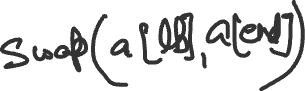 Swap(a[lb], a[end])